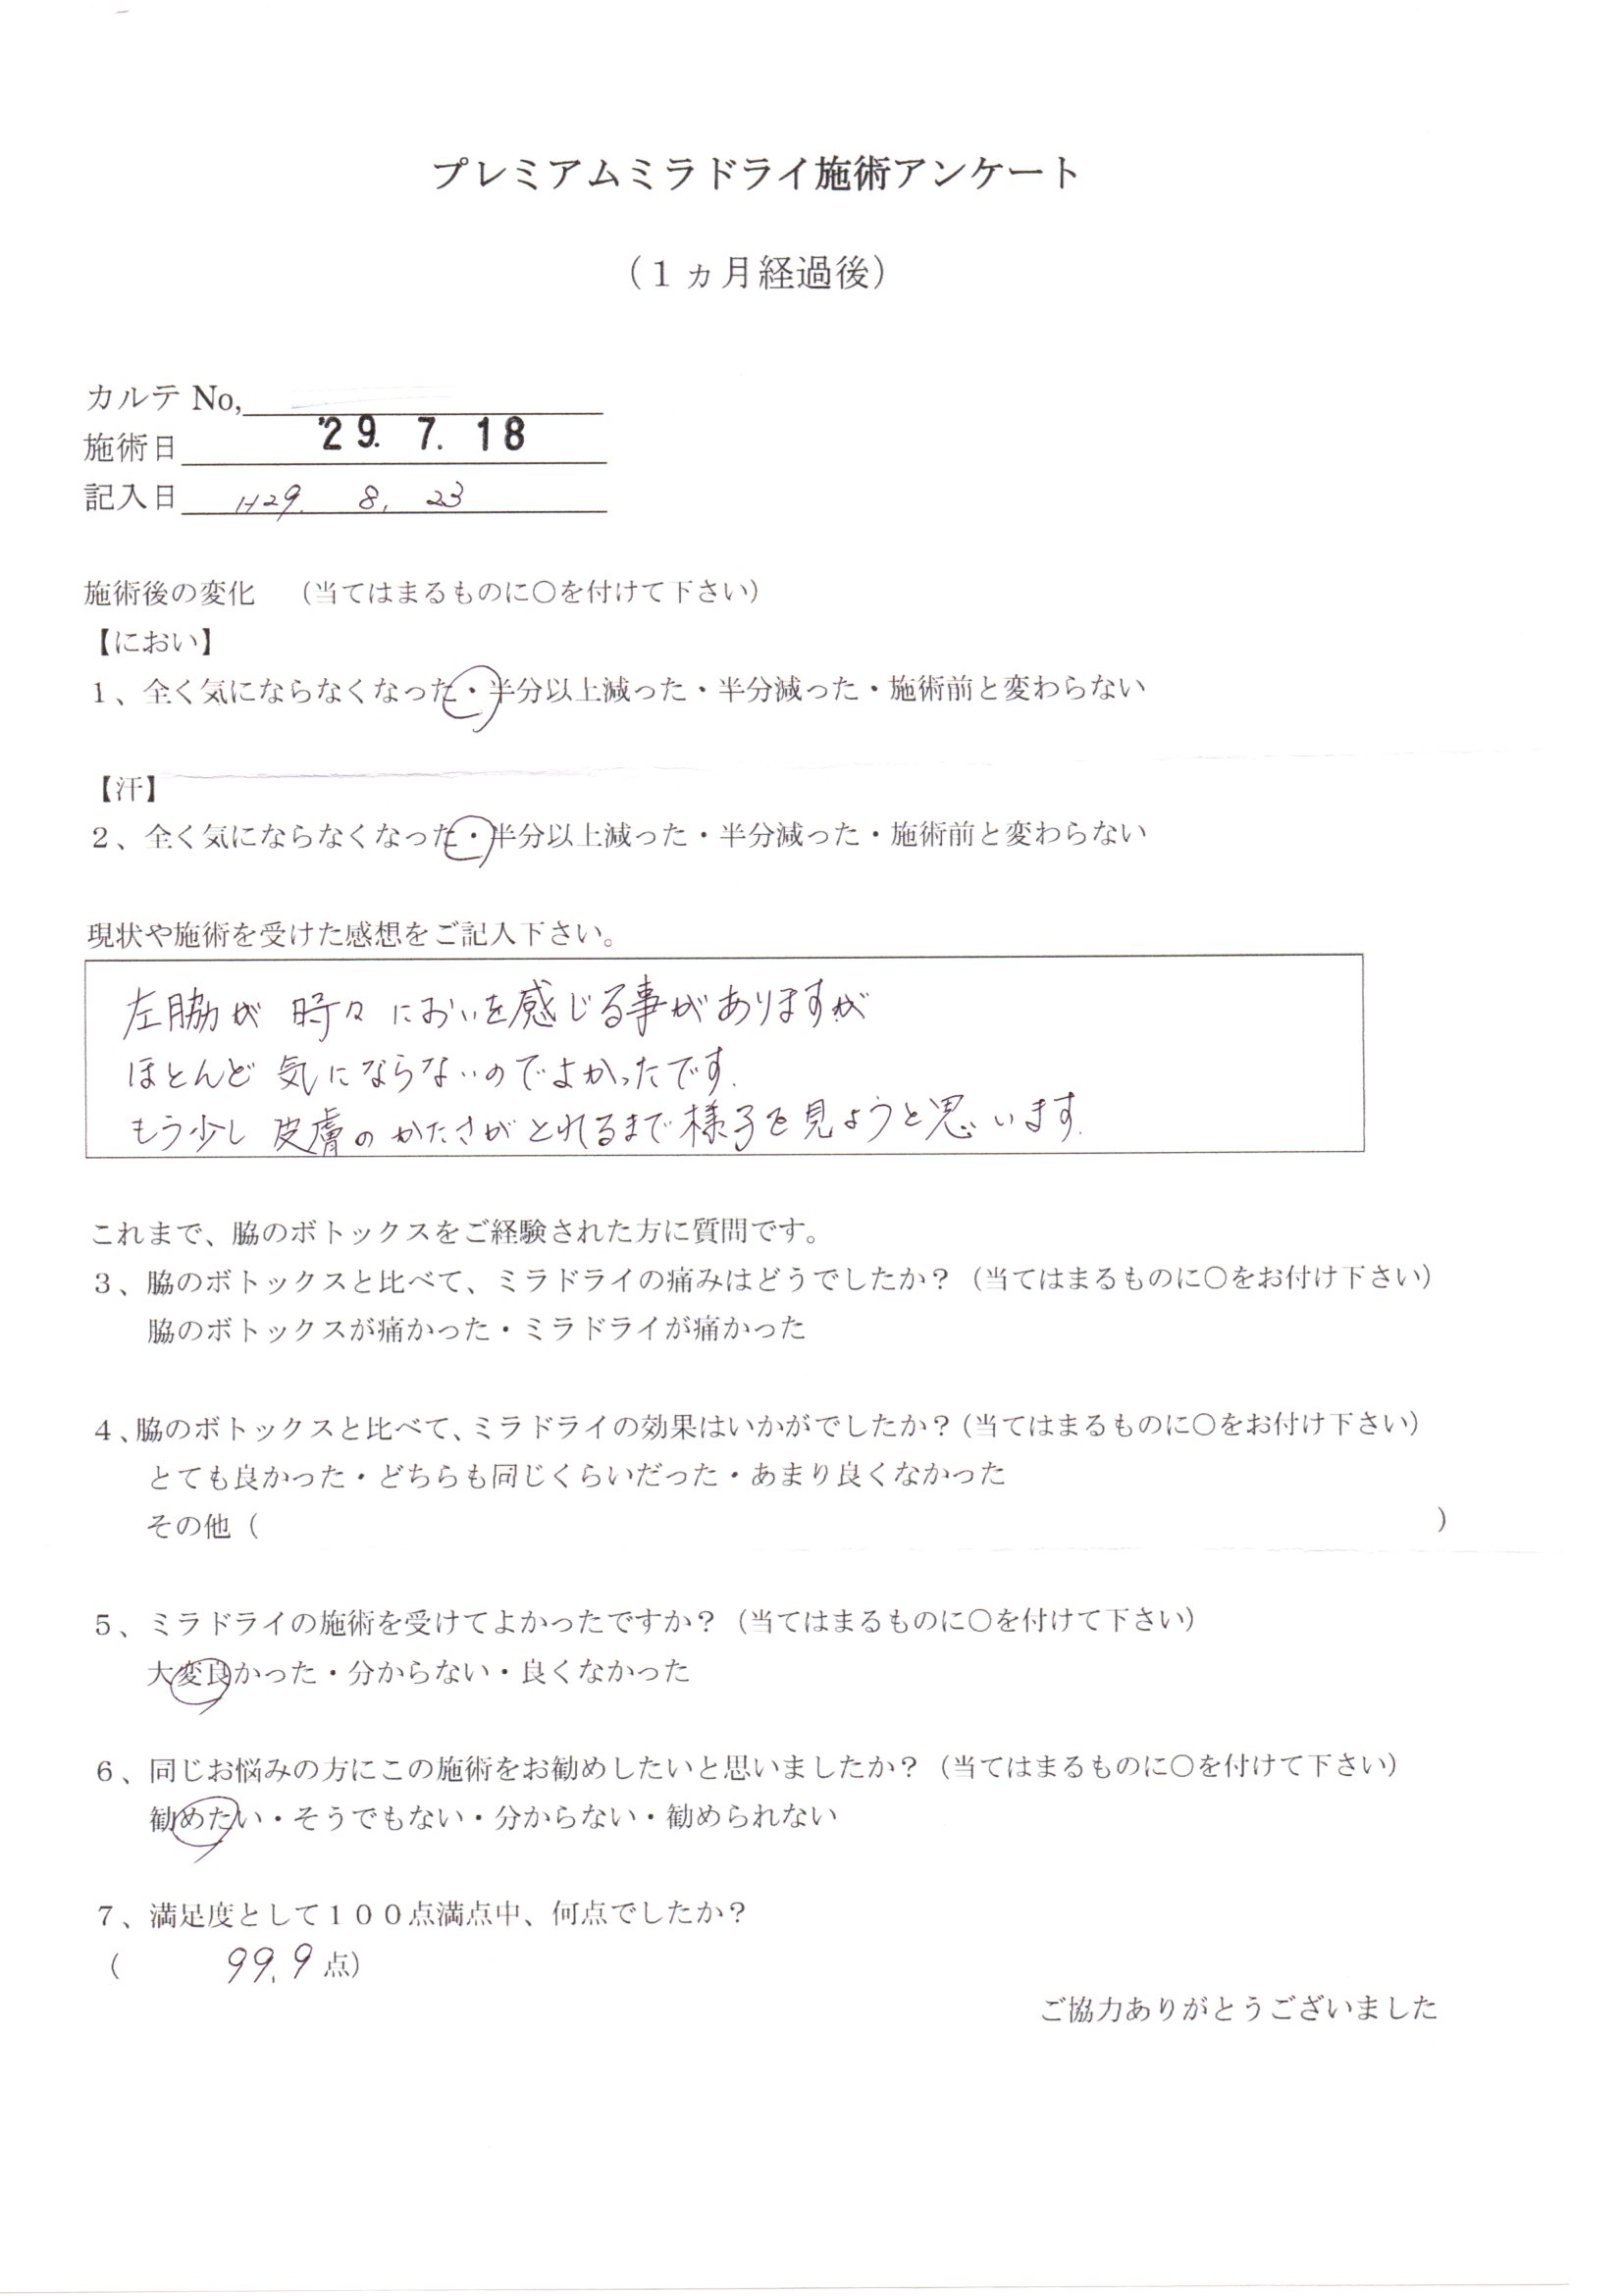 プレミアムミラドライ施術アンケート
（１ヵ月経過後）
カルテ No,
施術日 '29. 7. 18
記入日 H29. 8. 23
施術後の変化　（当てはまるものに〇を付けて下さい）
【におい】
１、全く気にならなくなった・半分以上減った・半分減った・施術前と変わらない
【汗】
２、全く気にならなくなった・半分以上減った・半分減った・施術前と変わらない
現状や施術を受けた感想をご記入下さい。
左脇が時々においを感じる事がありますが
ほとんど気にならないのでよかったです.
もう少し皮膚のかたさがとれるまで様子を見ようと思います.
これまで、脇のボトックスをご経験された方に質問です。
３、脇のボトックスと比べて、ミラドライの痛みはどうでしたか？（当てはまるものに〇をお付け下さい）
脇のボトックスが痛かった・ミラドライが痛かった
４、脇のボトックスと比べて、ミラドライの効果はいかがでしたか？（当てはまるものに〇をお付け下さい）
とても良かった・どちらも同じくらいだった・あまり良くなかった
その他（　　　　　）
５、ミラドライの施術を受けてよかったですか？（当てはまるものに〇を付けて下さい）
大変良かった・分からない・良くなかった
６、同じお悩みの方にこの施術をお勧めしたいと思いましたか？（当てはまるものに〇を付けて下さい）
勧めたい・そうでもない・分からない・勧められない
７、満足度として１００点満点中、何点でしたか？
（　99.9 点）
ご協力ありがとうございました